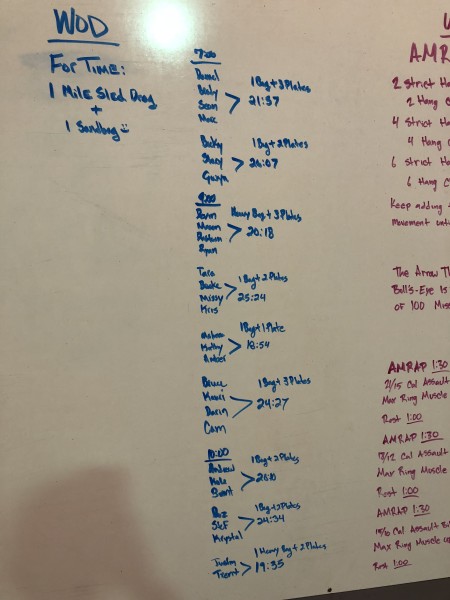 WOD
For Time:
1 Mile Sled Drag
+
1 Sandbag
7:00
1 Bag + 3 Plates
Sean > 21:37
Marc
Becky 1 Bag + 2 Plates
Stacy > 26:07
Gwyn
Devin Heavy Bag + 3 Plates
Mason > 20:18
Ryan
Tara 1 Bag + 2 Plates
Brooke
Missy > 25:24
Kris
1 Bag + 1 Plate
> 18:54
Amber
Bruce 1 Bag + 3 Plates
> 24:27
Darin
Cam
10:00
Andrew 1 Bag + 2 Plates
Brent
> 24:34
Krystal
Justin 1 Heavy Bag + 2 Plates
Trent > 19:35
AMRA
2 Strict Ha
2 Hang C
4 Strict Ha
4 Hang C
6 Strict Ha
6 Hang C
Keep adding
Movement unti
The Arrow Th
Bull's-Eye Is
of 100 Miss
AMRAP 1:30
21/15 Cal Assault
Max Ring Muscle
Rest 1:00
AMRAP 1:30
Cal Assault
Max Ring Muscle
Rest 1:00
AMRAP 1:30
Cal Assault Bi
Max Ring Muscle u
Rest 1:00